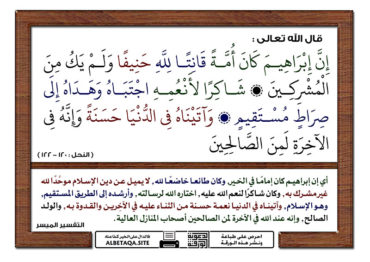 قال الله تعالى :
إِنَّ إِبْرَاهِيمَ كَانَ أُمَّةً قَانِتًا لِلَّهِ حَنِيفًا وَلَمْ يَكُ مِنَ
الْمُشْرِكِينَ ۞ شَاكِرًا لِأَنْعُمِهِ اجْتَبَاهُ وَهَدَاهُ إِلَى
صِرَاطٍ مُسْتَقِيمٍ ۞ وَآتَيْنَاهُ فِي الدُّنْيَا حَسَنَةً وَإِنَّهُ فِي
الْآخِرَةِ لَمِنَ الصَّالِحِينَ
( النحل : ١٢٠ - ١٢٢ )
أي إن إبراهيم كان إمامًا في الخير, وكان طائعا خاضعًا لله, لا يميل عن دين الإسلام موحِّدًا لله
غير مشرك به, وكان شاكرًا لنعم الله عليه, اختاره الله لرسالته, وأرشده إلى الطريق المستقيم,
وهو الإسلام, وآتيناه في الدنيا نعمة حسنة من الثناء عليه في الآخِرين والقدوة به, والولد
الصالح, وإنه عند الله في الآخرة لمن الصالحين أصحاب المنازل العالية.
التفسير الميسر
احرص على طباعة
ونشر هذه الورقة
فالدال على الخير كفاعله
ALBETAQA.SITE